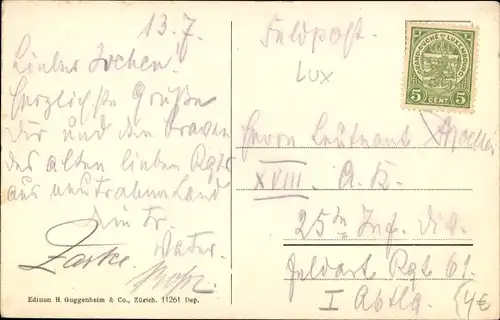 13.7.
Lieber Jochen!
Herzlichste Grüße
Dir und den Braven
des alten lieben Rgts
aus
Dein tr.
Vater.
Feldpost.
LUX
GRAND-DUCHÉ DE LUXEMBOURG
5 CENT. 5
Herrn Leutnant
XVIII. A.K.
25te Inf. Div.
Feldart Rgt 61.
I Abtlg.
4€
Edition H. Guggenheim & Co., Zürich. 11261 Dep.